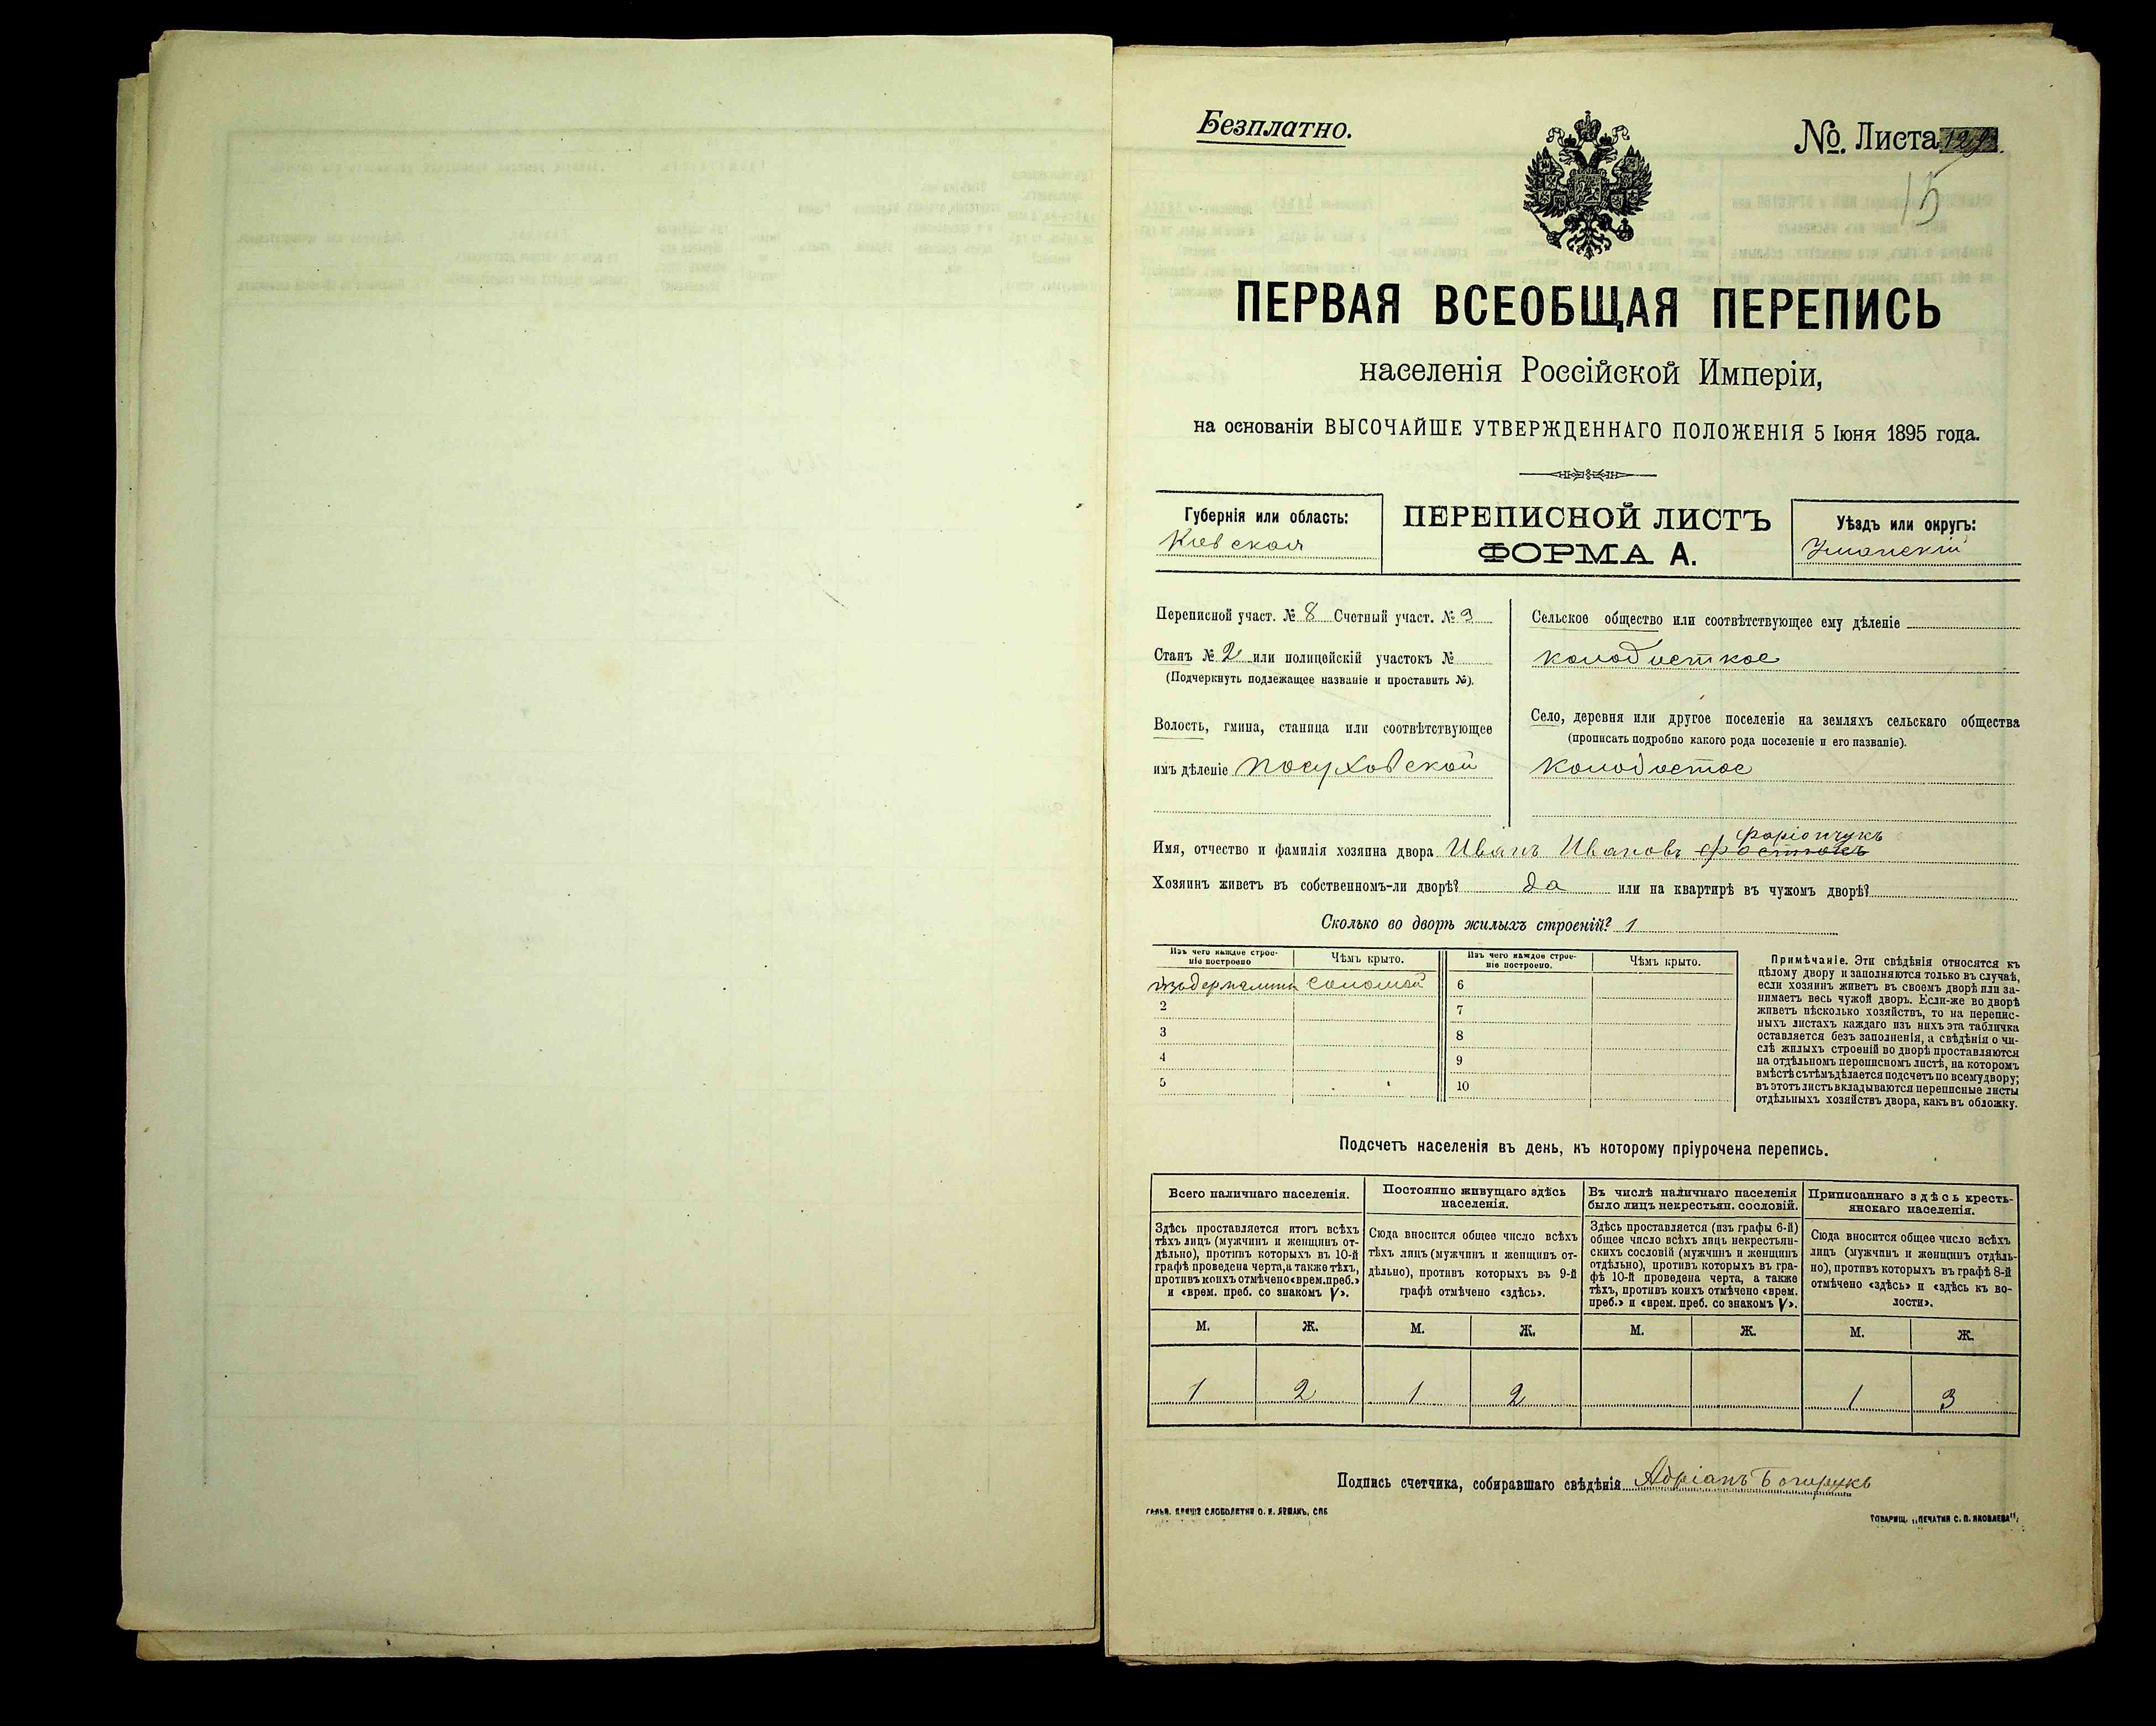 Безплатно.
№. Листа
15
ПЕРВАЯ ВСЕОБЩАЯ ПЕРЕПИСЬ
населенія Россійской Имперіи,
на основаніи ВЫСОЧАЙШЕ УТВЕРЖДЕННАГО ПОЛОЖЕНІЯ 5 Іюня 1895 года.
Губернія или область:
Киевская
ПЕРЕПИСНОЙ ЛИСТЪ
ФОРМА А.
Уѣздъ или округъ:
Уманскій
Переписной участ. № 8 Счетный участ. № 3
Станъ № 2 или полицейскій участокъ №
(Подчеркнуть подлежащее названіе и проставить №).
Волость, гмина, станица или соотвѣтствующее
имъ дѣленіе Посуховской
Сельское общество или соотвѣтствующее ему дѣленіе
колодисткое
Село, деревня или другое поселеніе на земляхъ сельскаго общества
(прописать подробно какого рода поселеніе и его названіе).
Колодистое
Имя, отчество и фамилія хозяина двора Иванъ Ивановъ Фаріончукъ
Хозяинъ живетъ въ собственномъ-ли дворѣ? да или на квартирѣ въ чужомъ дворѣ?
Сколько во дворѣ жилыхъ строеній? 1
Изъ чего каждое строе-
ніе построено
Чѣмъ крыто.
соломой
2
3
4
5
Изъ чего каждое строе-
ніе построено.
Чѣмъ крыто.
6
7
8
9
10
Примѣчаніе. Эти свѣдѣнія относятся къ
цѣлому двору и заполняются только въ случаѣ,
если хозяинъ живетъ въ своемъ дворѣ или за-
нимаетъ весь чужой дворъ. Если-же во дворѣ
живетъ нѣсколько хозяйствъ, то на перепис-
ныхъ листахъ каждаго изъ нихъ эта табличка
оставляется безъ заполненія, а свѣдѣнія о чи-
слѣ жилыхъ строеній во дворѣ проставляются
на отдѣльномъ переписномъ листѣ, на которомъ
вмѣстѣ съ тѣмъ дѣлается подсчетъ по всему двору;
въ этотъ листъ вкладываются переписные листы
отдѣльныхъ хозяйствъ двора, какъ въ обложку.
Подсчетъ населенія въ день, къ которому пріурочена перепись.
Всего наличнаго населенія.
Здѣсь проставляется итогъ всѣхъ
тѣхъ лицъ (мужчинъ и женщинъ от-
дѣльно), противъ которыхъ въ 10-й
графѣ проведена черта, а также тѣхъ,
противъ коихъ отмѣчено «врем. преб.»
и «врем. преб. со знакомъ V».
М. Ж.
1 2
Постоянно живущаго здѣсь
населенія.
Сюда вносится общее число всѣхъ
тѣхъ лицъ (мужчинъ и женщинъ от-
дѣльно), противъ которыхъ въ 9-й
графѣ отмѣчено «здѣсь».
М. Ж.
1 2
Въ числѣ наличнаго населенія
было лицъ некрестьян. сословій.
Здѣсь проставляется (изъ графы 6-й)
общее число всѣхъ лицъ некрестьян-
скихъ сословій (мужчинъ и женщинъ
отдѣльно), противъ которыхъ въ гра-
фѣ 10-й проведена черта, а также
тѣхъ, противъ коихъ отмѣчено «врем.
преб.» и «врем. преб. со знакомъ V».
М. Ж.
Приписаннаго здѣсь кресть-
янскаго населенія.
Сюда вносится общее число всѣхъ
лицъ (мужчинъ и женщинъ отдѣль-
но), противъ которыхъ въ графѣ 8-й
отмѣчено «здѣсь» и «здѣсь къ во-
лости».
М. Ж.
1 3
Подпись счетчика, собиравшаго свѣдѣнія Адріанъ
ТОВАРИЩ. „ПЕЧАТНЯ С. П. ЯКОВЛЕВА“.